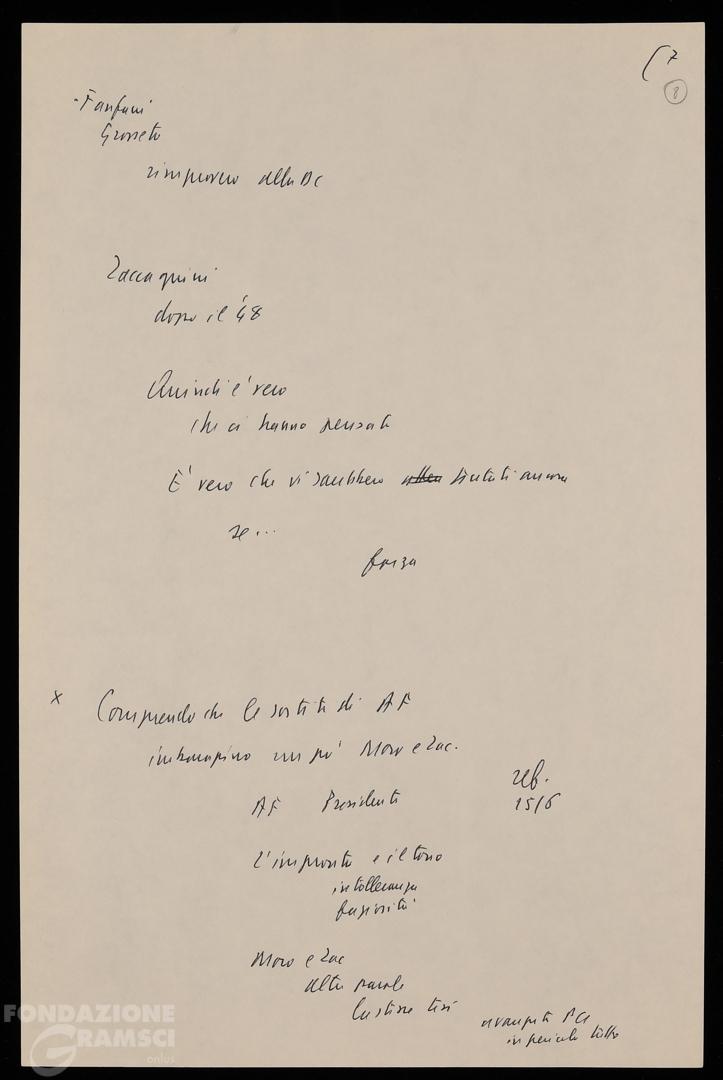 (7
8
- Fanfani
Grosseto
rimprovero alla DC
Zaccagnini
dopo il '48
Quindi è vero
che ci hanno pensato
È vero che vi sarebbero tentati ancora
se...
forza
x Comprendo che le sortite di AF
imbarazzino un po' Moro e Zac.
AF Presidente
rif.
15/6
L'impronta e il tono
intolleranza
faziosità
Moro e Zac
altre parole
la stessa tesi
avanzata PCI
in pericolo tutto
FONDAZIONE
GRAMSCI
onlus